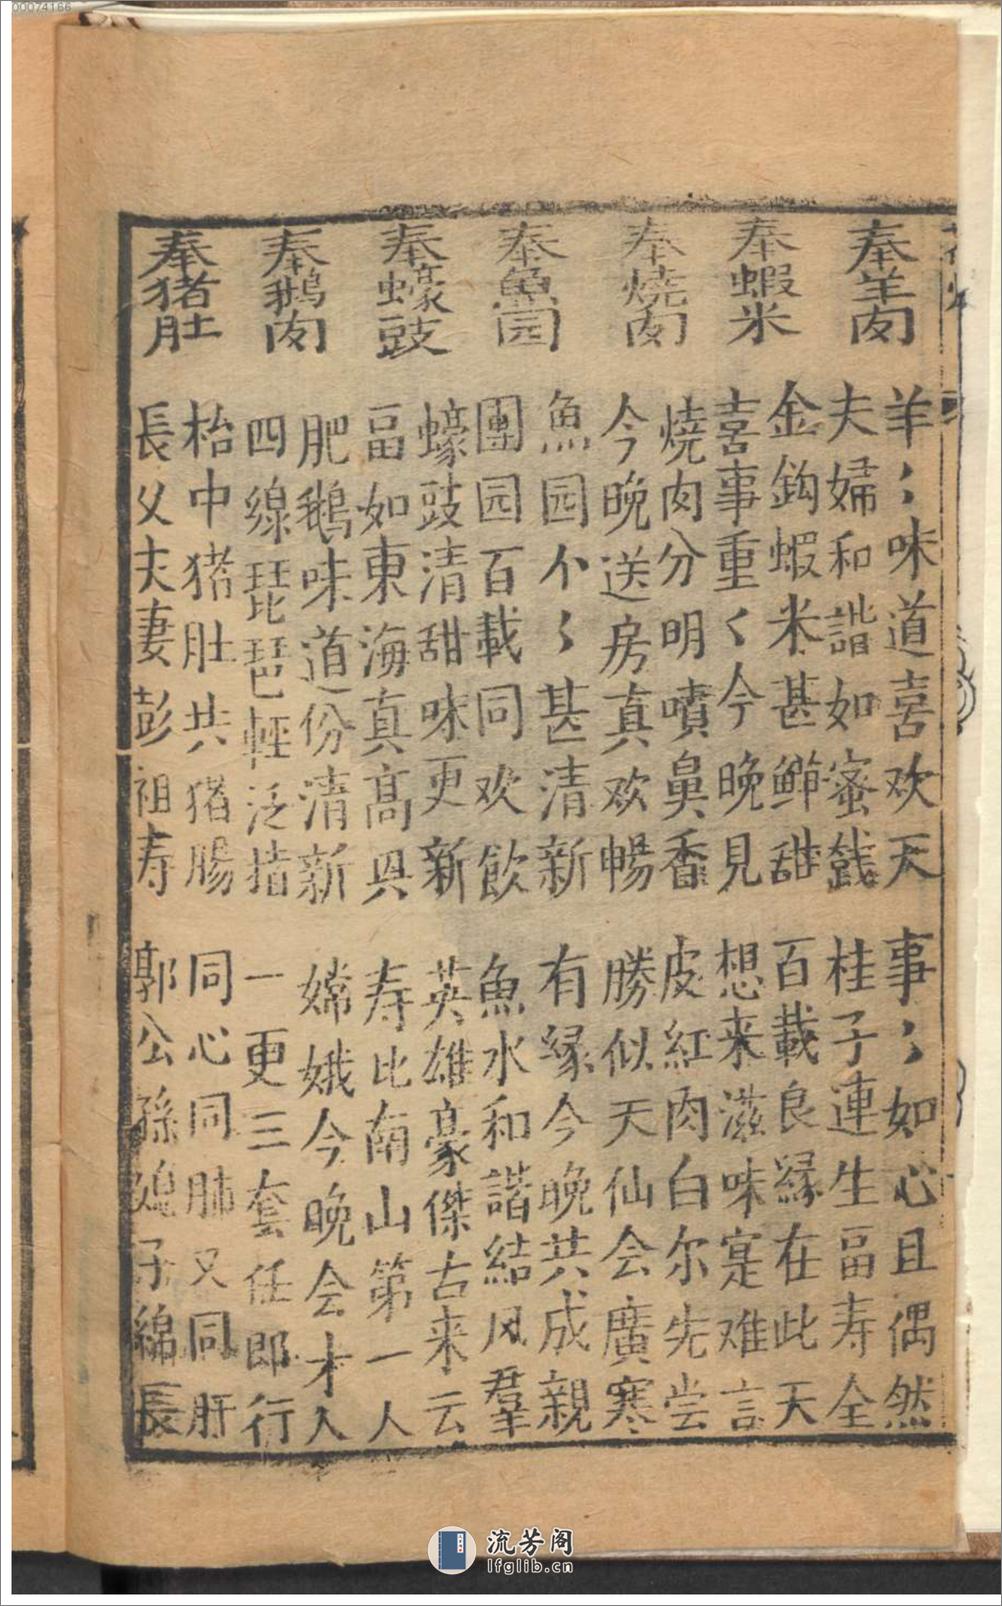 00074166
奉羊肉
羊〻味道喜欢天 事〻如心且偶然
夫婦和諧如蜜餞 桂子連生畐寿全
奉蝦米
金鈎蝦米甚鮮甜 百載良縁在此天
喜事重〻今晚見 想来滋味寔难言
奉燒肉
燒肉分明噴鼻香 皮紅肉白尔先尝
今晚送房真欢暢 勝似天仙会廣寒
奉魚园
魚园个〻甚清新 有縁今晚共成親
團园百載同欢飲 魚水和諧結风羣
奉蠔豉
蠔豉清甜味更新 英雄豪傑古来云
畐如東海真高具 寿比南山第一人
奉鵝肉
肥鵝味道份清新 嫦娥今晚会才人
四線琵琶輕泛措 一更三套任即行
奉猪肚
枱中猪肚共猪腸 同心同肺又同肝
長父夫妻彭祖寿 郭公孫媳子綿長
流芳阁
lfglib.cn